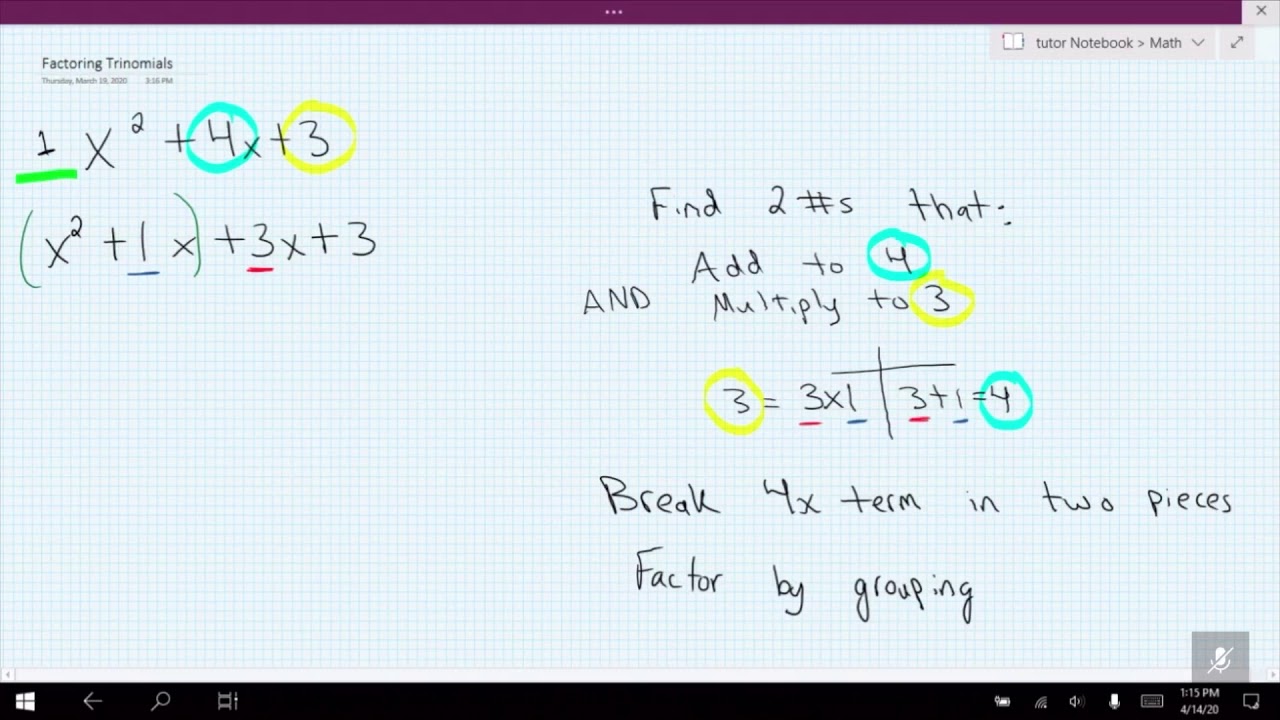 ...
tutor Notebook > Math
Factoring Trinomials
Thursday, March 19, 2020 3:16 PM
1 x² + 4x + 3
(x² + 1x) + 3x + 3
Find 2 #s that:
Add to 4
AND Multiply to 3
3 = 3x1 | 3+1=4
Break 4x term in two pieces
Factor by grouping
1:15 PM
4/14/20